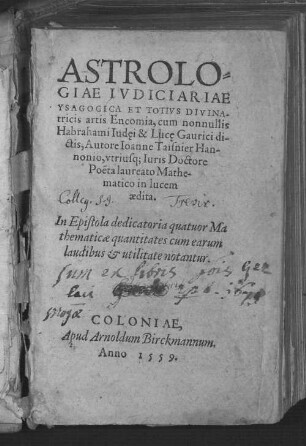 ASTROLO-
GIAE IVDICIARIAE
YSAGOGICA ET TOTIVS DIVINA-
tricis artis Encomia, cum nonnullis
Habrahami Iudęi & Lucę Gaurici di-
ctis, Autore Ioanne Taisnier Han-
nonio, vtriusq; Iuris Doctore
Poëta laureato Mathe-
matico in lucem
ædita.
Colleg. S.J. Trevir.
In Epistola dedicatoria quatuor Ma
thematicæ quantitates cum earum
laudibus & utilitate notantur.
Sum ex libris
COLONIAE,
Apud Arnoldum Birckmannum.
Anno 1559.